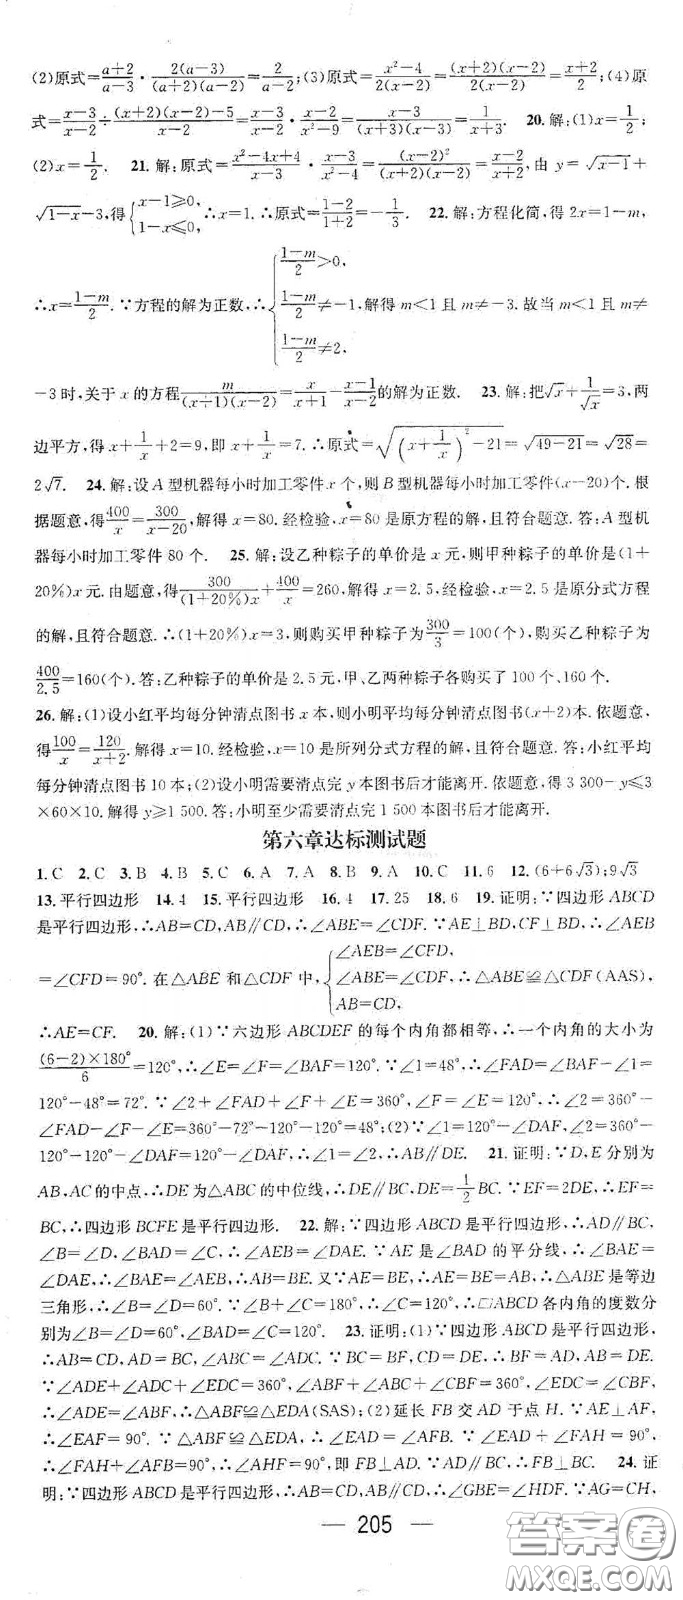 (2)原式=\frac{a+2}{a-3}·\frac{2(a-3)}{(a+2)(a-2)}=\frac{2}{a-2};(3)原式=\frac{x²-4}{2(x-2)}=\frac{(x+2)(x-2)}{2(x-2)}=\frac{x+2}{2};(4)原
式=\frac{x-3}{x-2}÷\frac{(x+2)(x-2)-5}{x-2}=\frac{x-3}{x-2}·\frac{x-2}{x²-9}=\frac{x-3}{(x+3)(x-3)}=\frac{1}{x+3}. 20.解:(1)x=\frac{1}{2};
(2)x=\frac{1}{2}. 21.解:原式=\frac{x²-4x+4}{x-3}·\frac{x-3}{x²-4}=\frac{(x-2)²}{(x+2)(x-2)}=\frac{x-2}{x+2},由 y=√(x-1)+
√(1-x)-3,得{x-1≥0, 1-x≤0, ∴x=1.∴原式=\frac{1-2}{1+2}=-\frac{1}{3}. 22.解:方程化简,得 2x=1-m,
∴x=\frac{1-m}{2}.∵方程的解为正数,∴{\frac{1-m}{2}>0, \frac{1-m}{2}≠-1, \frac{1-m}{2}≠2, 解得 m<1 且 m≠-3.故当 m<1 且 m≠
-3时,关于 x 的方程\frac{m}{(x+1)(x-2)}=\frac{x}{x+1}-\frac{x-1}{x-2}的解为正数. 23.解:把√x+\frac{1}{√x}=3,两
边平方,得 x+\frac{1}{x}+2=9,即 x+\frac{1}{x}=7.∴原式=√((x+\frac{1}{x})²-21)=√(49-21)=√28=
2√7. 24.解:设 A 型机器每小时加工零件 x 个,则 B 型机器每小时加工零件(x-20)个.根
据题意,得\frac{400}{x}=\frac{300}{x-20},解得 x=80.经检验,x=80 是原方程的解,且符合题意.答:A 型机
器每小时加工零件 80 个. 25.解:设乙种粽子的单价是 x 元,则甲种粽子的单价是(1+
20%)x 元.由题意,得\frac{300}{(1+20%)x}+\frac{400}{x}=260,解得 x=2.5,经检验,x=2.5 是原分式方程
的解,且符合题意.∴(1+20%)x=3,则购买甲种粽子为\frac{300}{3}=100(个),购买乙种粽子为
\frac{400}{2.5}=160(个).答:乙种粽子的单价是 2.5 元,甲、乙两种粽子各购买了 100 个、160 个.
26.解:(1)设小红平均每分钟清点图书 x 本,则小明平均每分钟清点图书(x+2)本.依题意,
得\frac{100}{x}=\frac{120}{x+2}.解得 x=10.经检验,x=10 是所列分式方程的解,且符合题意.答:小红平均
每分钟清点图书 10 本;(2)设小明需要清点完 y 本图书后才能离开.依题意,得 3 300-y≤3
×60×10.解得 y≥1 500.答:小明至少需要清点完 1 500 本图书后才能离开.
第六章达标测试题
1.C 2.C 3.B 4.B 5.C 6.A 7.A 8.A 9.A 10.C 11.6 12.(6+6√3);9√3
13.平行四边形 14.4 15.平行四边形 16.4 17.25 18.6 19.证明:∵四边形 ABCD
是平行四边形,∴AB=CD,AB∥CD,∴∠ABE=∠CDF.∵AE⊥BD,CF⊥BD,∴∠AEB
=∠CFD=90°.在△ABE 和△CDF 中,{∠AEB=∠CFD, ∠ABE=∠CDF, AB=CD, ∴△ABE≌△CDF(AAS),
∴AE=CF. 20.解:(1)∵六边形 ABCDEF 的每个内角都相等,∴一个内角的大小为
\frac{(6-2)×180°}{6}=120°,∴∠E=∠F=∠BAF=120°.∵∠1=48°,∴∠FAD=∠BAF-∠1=
120°-48°=72°.∵∠2+∠FAD+∠F+∠E=360°,∠F=∠E=120°,∴∠2=360°-
∠FAD-∠F-∠E=360°-72°-120°-120°=48°;(2)∵∠1=120°-∠DAF,∠2=360°-
120°-120°-∠DAF=120°-∠DAF,∴∠1=∠2,∴AB∥DE. 21.证明:∵D,E 分别为
AB,AC 的中点,∴DE 为△ABC 的中位线,∴DE∥BC,DE=\frac{1}{2}BC.∵EF=2DE,∴EF=
BC,∴四边形 BCFE 是平行四边形. 22.解:∵四边形 ABCD 是平行四边形,∴AD∥BC,
∠B=∠D,∠BAD=∠C,∴∠AEB=∠DAE.∵AE 是∠BAD 的平分线,∴∠BAE=
∠DAE,∴∠BAE=∠AEB,∴AB=BE.又∵AE=BE,∴AB=BE=AE,∴△ABE 是等边
三角形,∴∠B=∠D=60°.∵∠B+∠C=180°,∴∠C=120°,∴▱ABCD 各内角的度数分
别为∠B=∠D=60°,∠BAD=∠C=120°. 23.证明:(1)∵四边形 ABCD 是平行四边形,
∴AB=CD,AD=BC,∠ABC=∠ADC.∵BC=BF,CD=DE,∴BF=AD,AB=DE.
∵∠ADE+∠ADC+∠EDC=360°,∠ABF+∠ABC+∠CBF=360°,∠EDC=∠CBF,
∴∠ADE=∠ABF,∴△ABF≌△EDA(SAS);(2)延长 FB 交 AD 于点 H.∵AE⊥AF,
∴∠EAF=90°.∵△ABF≌△EDA,∴∠EAD=∠AFB.∵∠EAD+∠FAH=90°,
∴∠FAH+∠AFB=90°,∴∠AHF=90°,即 FB⊥AD.∵AD∥BC,∴FB⊥BC. 24.证
明:∵四边形 ABCD 是平行四边形,∴AD∥BC,∴∠GBE=∠HDF.∵AG=CH,
— 205 —
答案卷
MXQE.COM